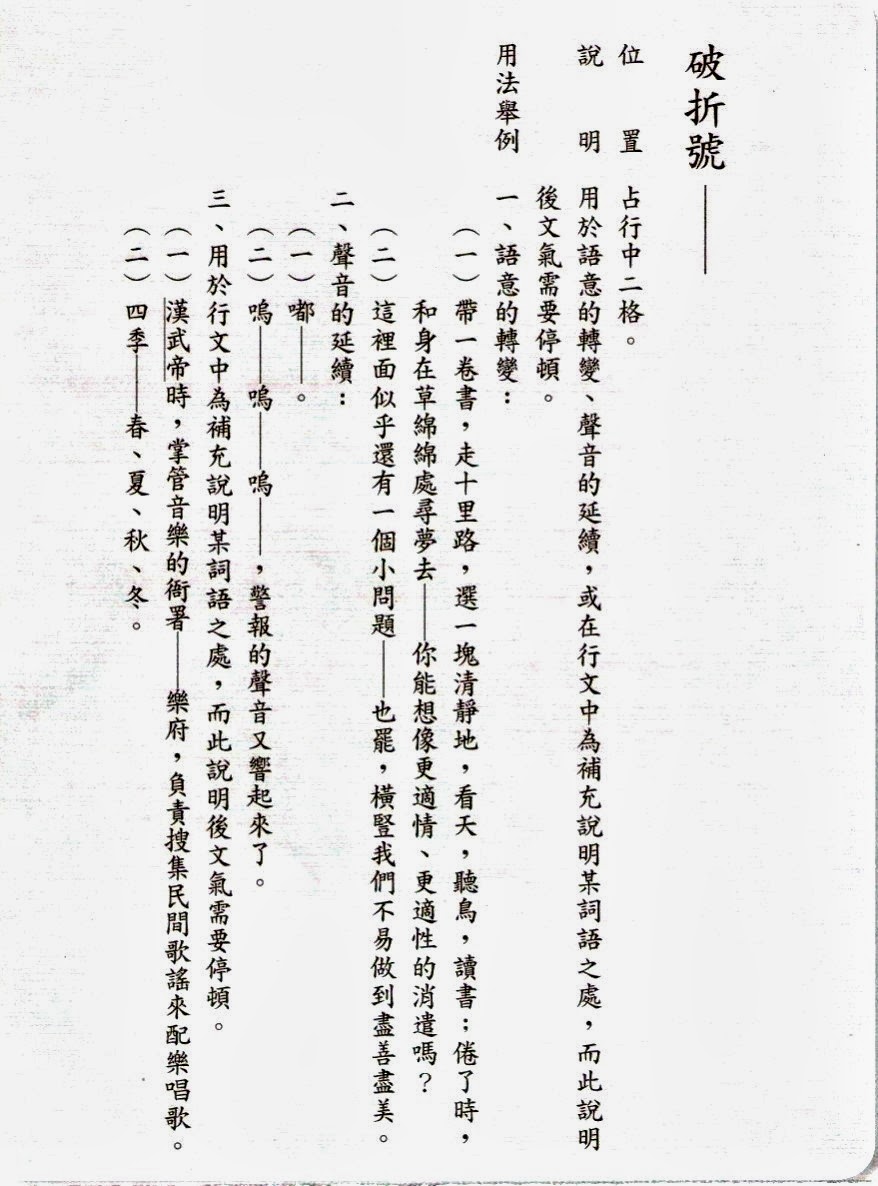 破折號——
位置　占行中二格。
說明　用於語意的轉變、聲音的延續，或在行文中為補充說明某詞語之處，而此說明
後文氣需要停頓。
用法舉例　一、語意的轉變：
（一）帶一卷書，走十里路，選一塊清靜地，看天，聽鳥，讀書；倦了時，
和身在草綿綿處尋夢去——你能想像更適情、更適性的消遣嗎？
（二）這裡面似乎還有一個小問題——也罷，橫豎我們不易做到盡善盡美。
二、聲音的延續：
（一）嘟——。
（二）嗚——嗚——嗚——，警報的聲音又響起來了。
三、用於行文中為補充說明某詞語之處，而此說明後文氣需要停頓。
（一）漢武帝時，掌管音樂的衙署——樂府，負責搜集民間歌謠來配樂唱歌。
（二）四季——春、夏、秋、冬。